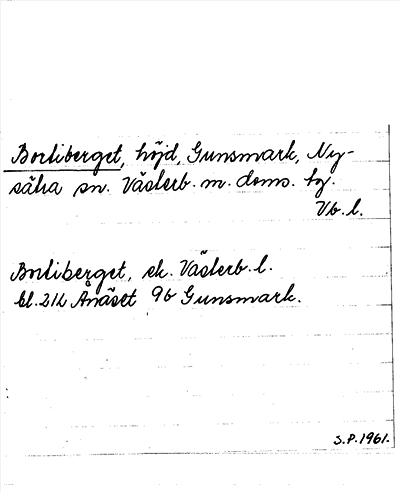 Borliberget, höjd, Gunsmark, Ny-
sätra sn. Västerb. m. doms. hg.
Vb. l.
Borliberget, ek. Västerb. l.
bl. 21L Ånäset 9b Gunsmark.
S.P. 1961.